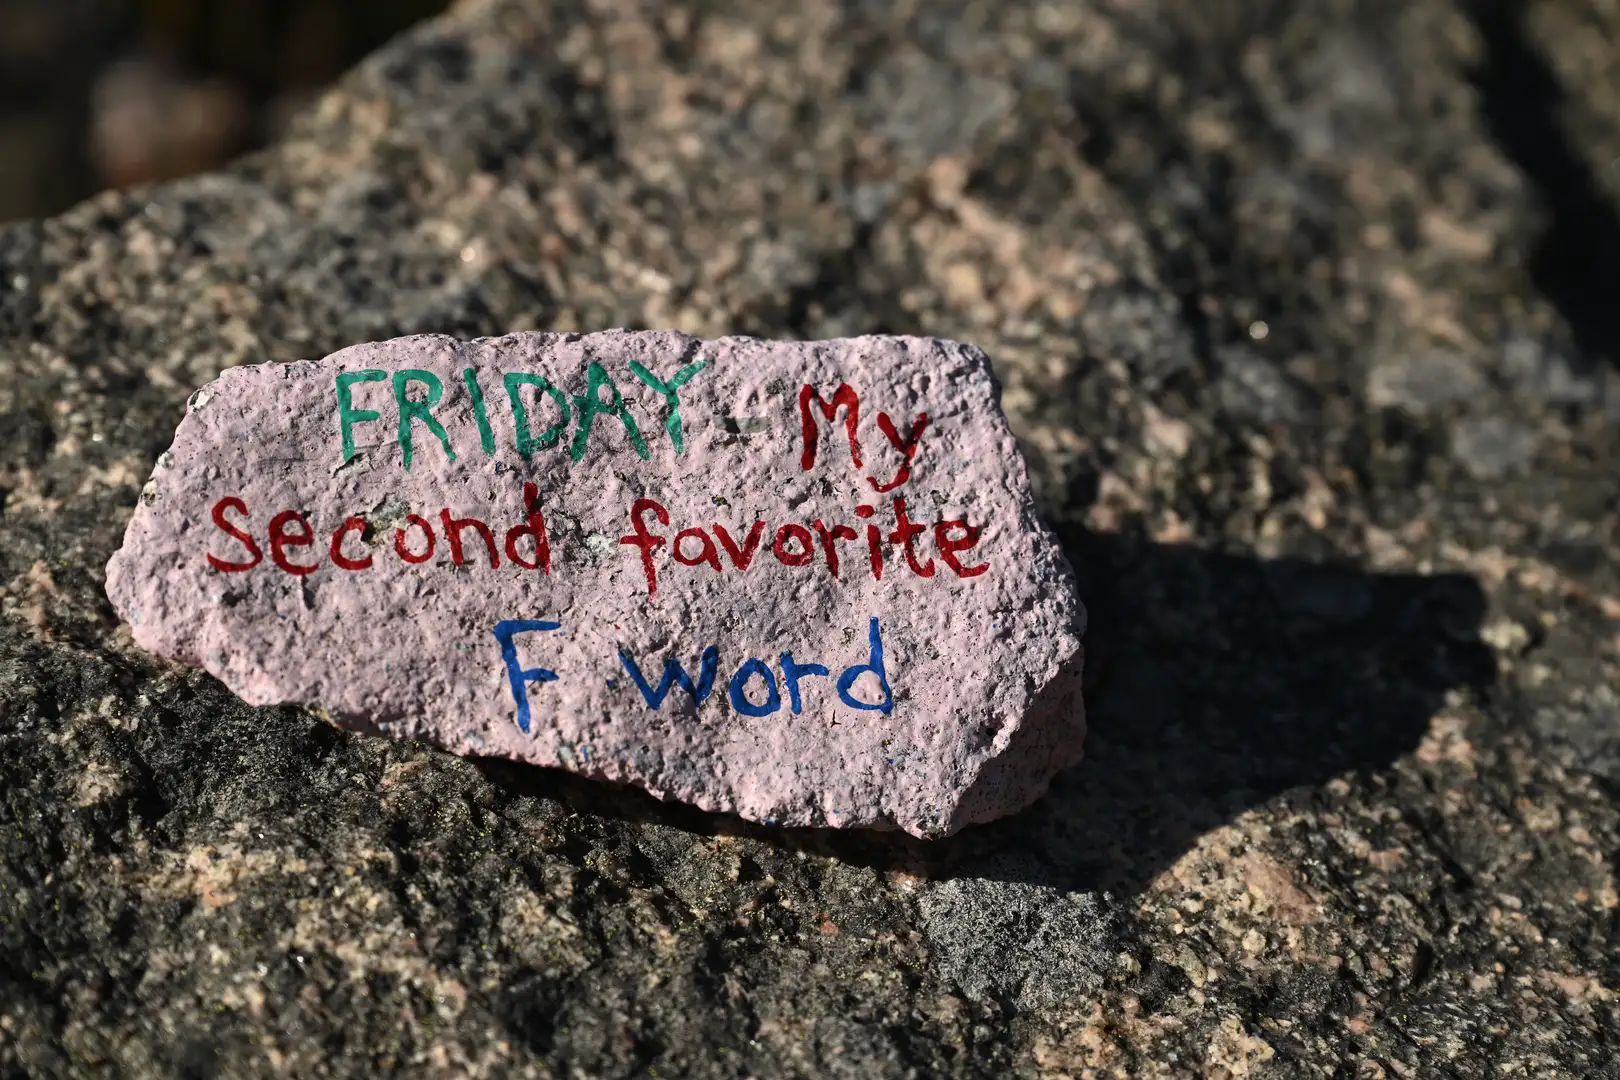 FRIDAY - My
Second favorite
F word